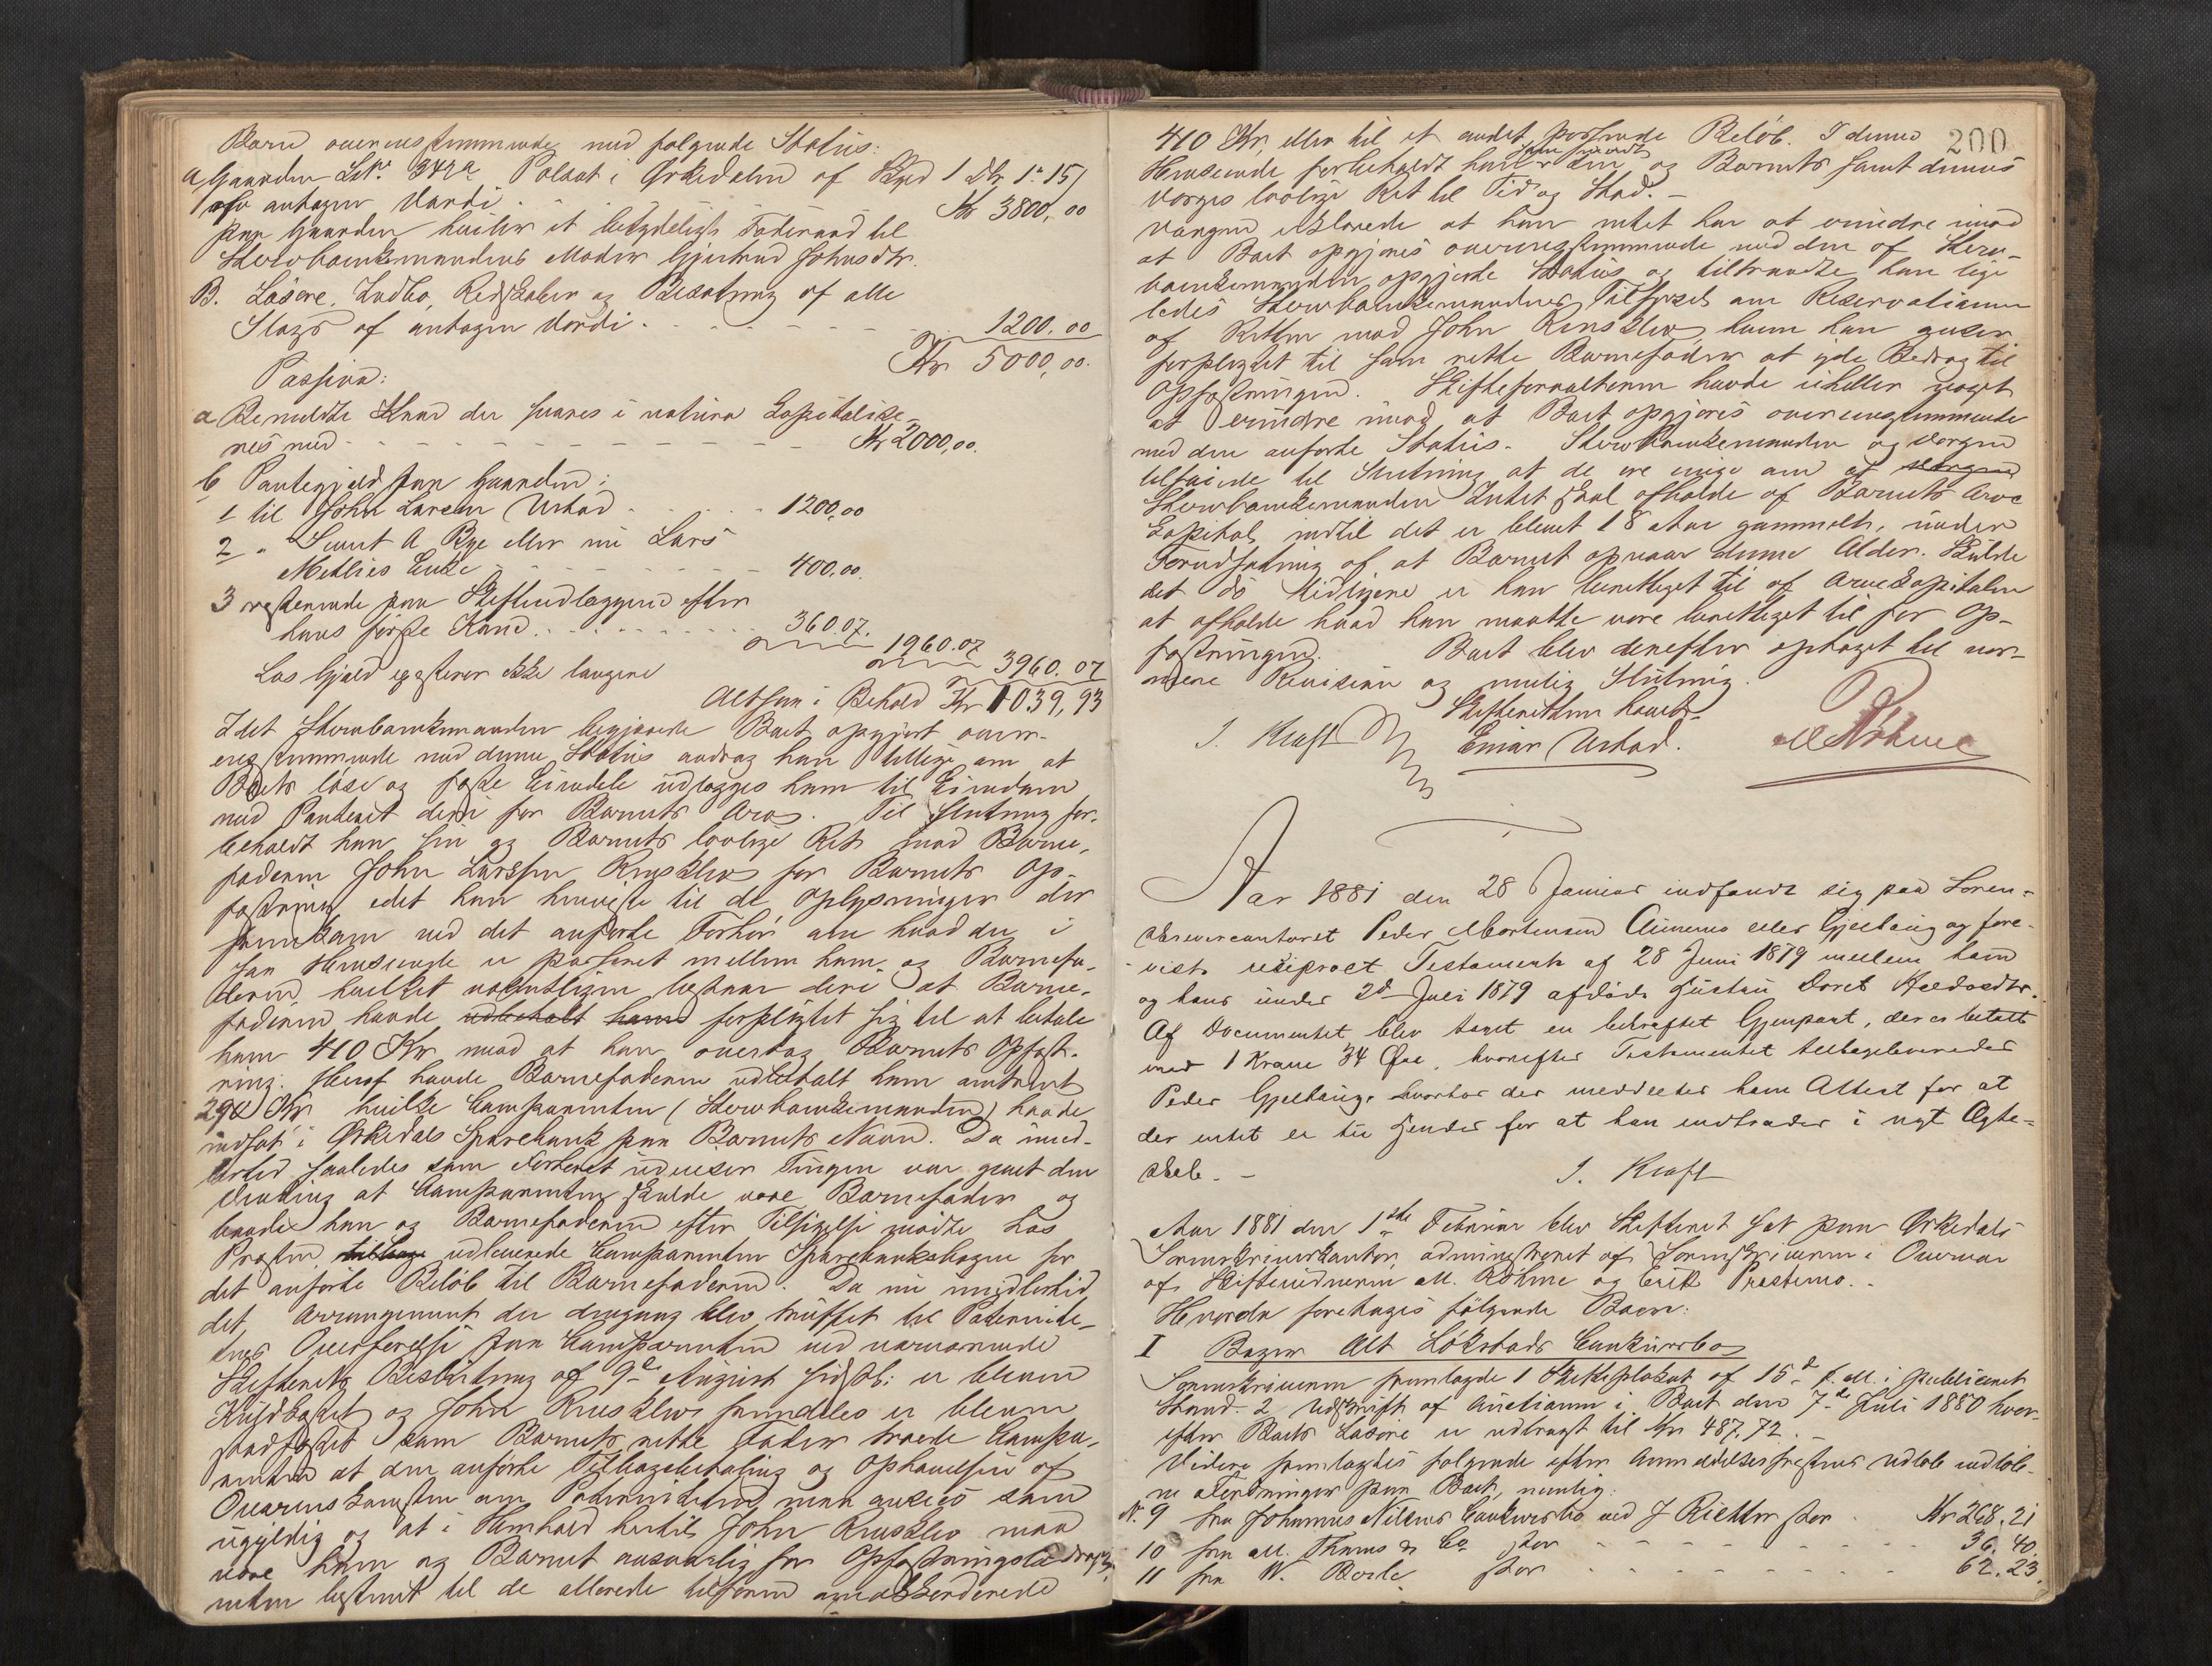 Barn overensstemmende med følgende Status:
a Gaarden Lit. 342a i Ørkedalen af Skyld 1 Dlr 1 " 15/
antagen Værdi Kr 3800,00
paa Gaarden hviler et betydeligt Føderaad til
Stervboenkemandens Moder Gjertrud Johnsdtr.
B. Løsøre, Indbo, Redskaber og Besætning af alle
Slags af antagen Værdi 1200.00
Kr 5000,00.
Passiva:
a Bemeldte der svares i natura Kapitalise-
res med Kr 2000,00.
b Pantegjæld paa Gaarden:
1 til John Larsen Urstad 1200,00
2 " Sivert A. Rye eller nu Lars
400,00.
3 resterende paa Skifteudlæggene efter
hans første Kone 360.07.
1960.07
3960.07
Løs Gjæld existerer ikke længere
Altsaa i Behold Kr 1039,93
Idet Stervboenkemanden begjærede Boet opgjort over-
ensstemmende med denne Status androg han tillige om at
Boets løse og faste Eiendele udlægges ham til Eiendom
med Panteret deri for Barnets Arv. Til Slutning for-
beholdt han sin og Barnets lovlige Ret mod Barne-
faderen John Larssen for Barnets Op-
fostring idet han henviste til de Oplysninger der
fremkom ved det anførte Forhør om hvad der i
saa Henseende er passeret mellem ham og Barnefa-
deren, hvilket væsentligen bestaar deri at Barne-
faderen havde udbetalt ham forpligtet sig til at betale
ham 410 Kr mod at han overtog Barnets Opfost-
ring. Heraf havde Barnefaderen udbetalt ham omtrent
290 Kr hvilke Comparenten (Stervboenkemanden) havde
indsat i Ørkedals Sparebank paa Barnets Navn. Da imid-
lertid saaledes som Forhøret udviser Tingen var givet den
Vending at Comparenten skulde være Barnefader og
baade han og Barnefaderen efter Tilsigelse mødte hos
Præsten, tilbage udleverede Comparenten Sparebanksbogen for
det anførte Beløb til Barnefaderen. Da nu imidlertid
det Arrangement der dengang blev truffet til Paternite-
tens Overførelse paa Comparenten ved nærværende
Skifterets Beslutning af 9de August sidstl: er bleven
og John fremdeles er bleven
stadfæstet som Barnets rette Fader troede Compa-
renten at den anførte Tilbagebetaling og Ophævelsen af
Overenskomsten om Paterniteten maa ansees som
ugyldig og at i Henhold hertil John maa
være ham og Barnet ansvarlig for Opfostringsbidraget
enten bestemt til de allerede tilforn
200
410 Kr. eller til et andet passende Beløb. I denne
Henseende forbeholdt han sin og Barnets samt dennes
Værges lovlige Ret til Tid og Sted. -
Værgen erklærede at han intet har at erindre imod
at Boet opgjøres overensstemmende med den af Sterv-
boenkemanden opgjorte Status og tiltraadte han lige-
ledes Stervboenkemandens Tilførsel om Reservationen
af Retten mod John hvem han anser
forpligtet til som rette Barnefader at yde Bidrag til
Opfostringen. Skifteforvalteren havde iheller noget
at erindre imod at Boet opgjøres overensstemmende
med den anførte Status. Stervboenkemanden og Værgen
tilføiede til Slutning at de ere enige om at Værgen
Stervboenkemanden Intet skal afholde af Barnets Arve
Kapital, indtil det er blevet 18 Aar gammelt, under
Forudsætning af at Barnet opnaar denne Alder. Skulde
det dø tidligere er han berettiget til af Arvekapitalen
at afholde hvad han maatte være berettiget til for Op-
fostringen. Boet blev derefter optaget til nær-
mere Revision og mulig Slutning.
Skifteretten hævet.
I. Kraft Einar Urstad. M Røhme
Aar 1881 den 28 Januar indfandt sig paa Soren-
skrivercontoret Peder Mortensen eller Gjelbing og fore-
viste resiproct Testament af 28 Juni 1879 mellem ham
og hans under 2d Juli 1879 afdøde Hustru Doret
Af Documentet blev taget en bekræftet Gjenpart, der er betalt
med 1 Krone 34 Øre, hvorefter Testamentet tilbageleveredes
Peder Gjelbing, hvorhos der meddeeltes ham Attest for at
der intet er til Hinder for at han indtræder i nyt Ægte-
skab. -
I. Kraft
Aar 1881 den 1ste Februar blev Skifteret sat paa Ørkedals
Sorenskriverkontor, administreret af Sorenskriveren i Overvær
af Skiftevidnerne M. Røhme og Erik Præstmo. -
Hvorda foretoges følgende Boer:
I Løkstads Concursbo
Sorenskriveren fremlagde 1 Skifteplakat af 15de f. M. i publiceret
Stand. 2 Udskrift af Auctionen i Boet den 7de Juli 1880 hvor-
efter Boets Løsøre er udbragt til Kr 487.72. -
Videre fremlagdes følgende efter Anmeldelsesfristens Udløb indløb-
ne Fordringer paa Boet, nemlig:
N. 9 fra Johannes Nilsens Concursbo ved J Richter stor Kr 268.21
10 fra M. Thams & Co stor 36.40.
11 fra W. stor 62.23.